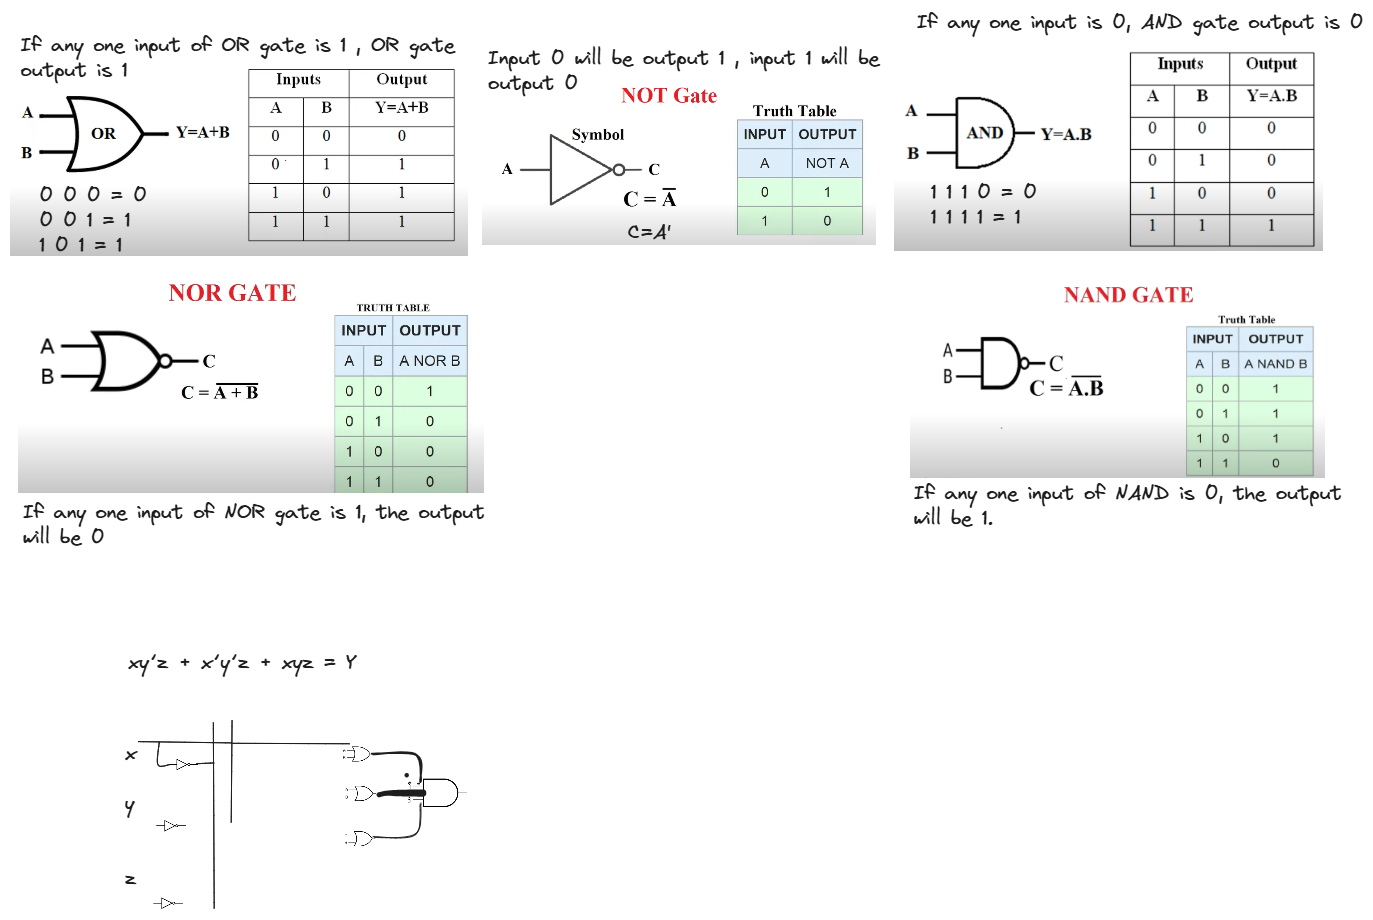 If any one input of OR gate is 1 , OR gate
output is 1
Inputs Output
A B Y=A+B
0 0 0
0 1 1
1 0 1
1 1 1
A
B
OR
Y=A+B
0 0 0 = 0
0 0 1 = 1
1 0 1 = 1
Input 0 will be output 1 , input 1 will be
output 0
NOT Gate
Symbol
A
C
C = A̅
C=A'
Truth Table
INPUT OUTPUT
A NOT A
0 1
1 0
If any one input is 0, AND gate output is 0
A
B
AND
Y=A.B
1 1 1 0 = 0
1 1 1 1 = 1
Inputs Output
A B Y=A.B
0 0 0
0 1 0
1 0 0
1 1 1
NOR GATE
A
B
C
C = A̅ ̅+̅ ̅B̅
TRUTH TABLE
INPUT OUTPUT
A B A NOR B
0 0 1
0 1 0
1 0 0
1 1 0
If any one input of NOR gate is 1, the output
will be 0
NAND GATE
A
B
C
C = A̅.̅B̅
Truth Table
INPUT OUTPUT
A B A NAND B
0 0 1
0 1 1
1 0 1
1 1 0
If any one input of NAND is 0, the output
will be 1.
xy'z + x'y'z + xyz = Y
x
y
z